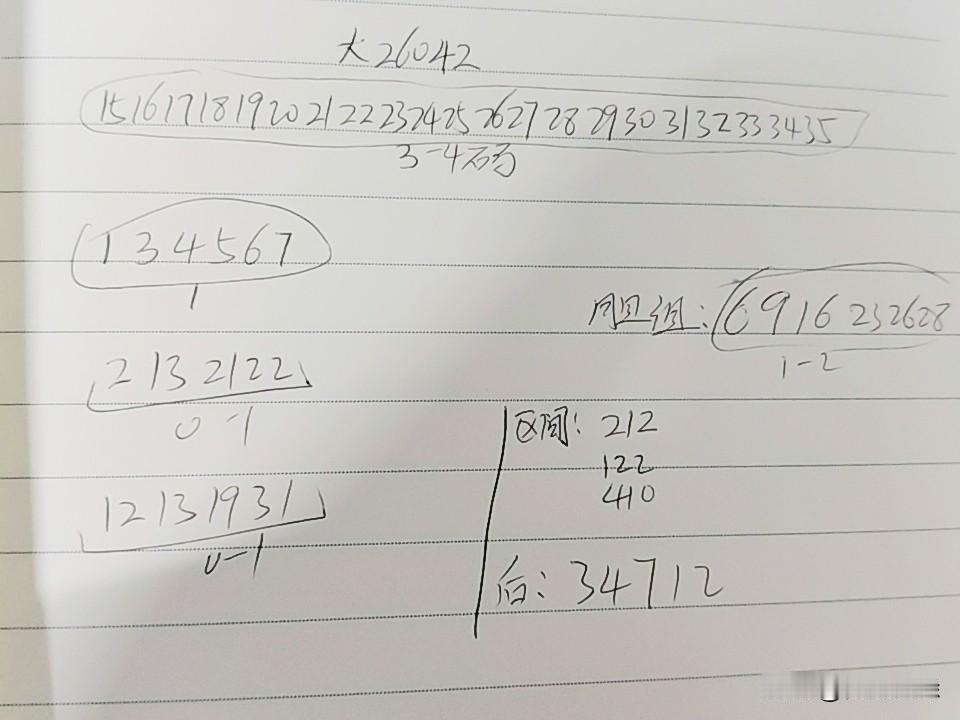 大26042
15 16 17 18 19 20 21 22 23 24 25 26 27 28 29 30 31 32 33 34 35
3-4码
1 3 4 5 6 7
1
胆组: 6 9 16 23 26 28
1-2
2 13 21 22
0-1
12 13 19 31
0-1
区间: 212
122
410
后: 3 4 7 12